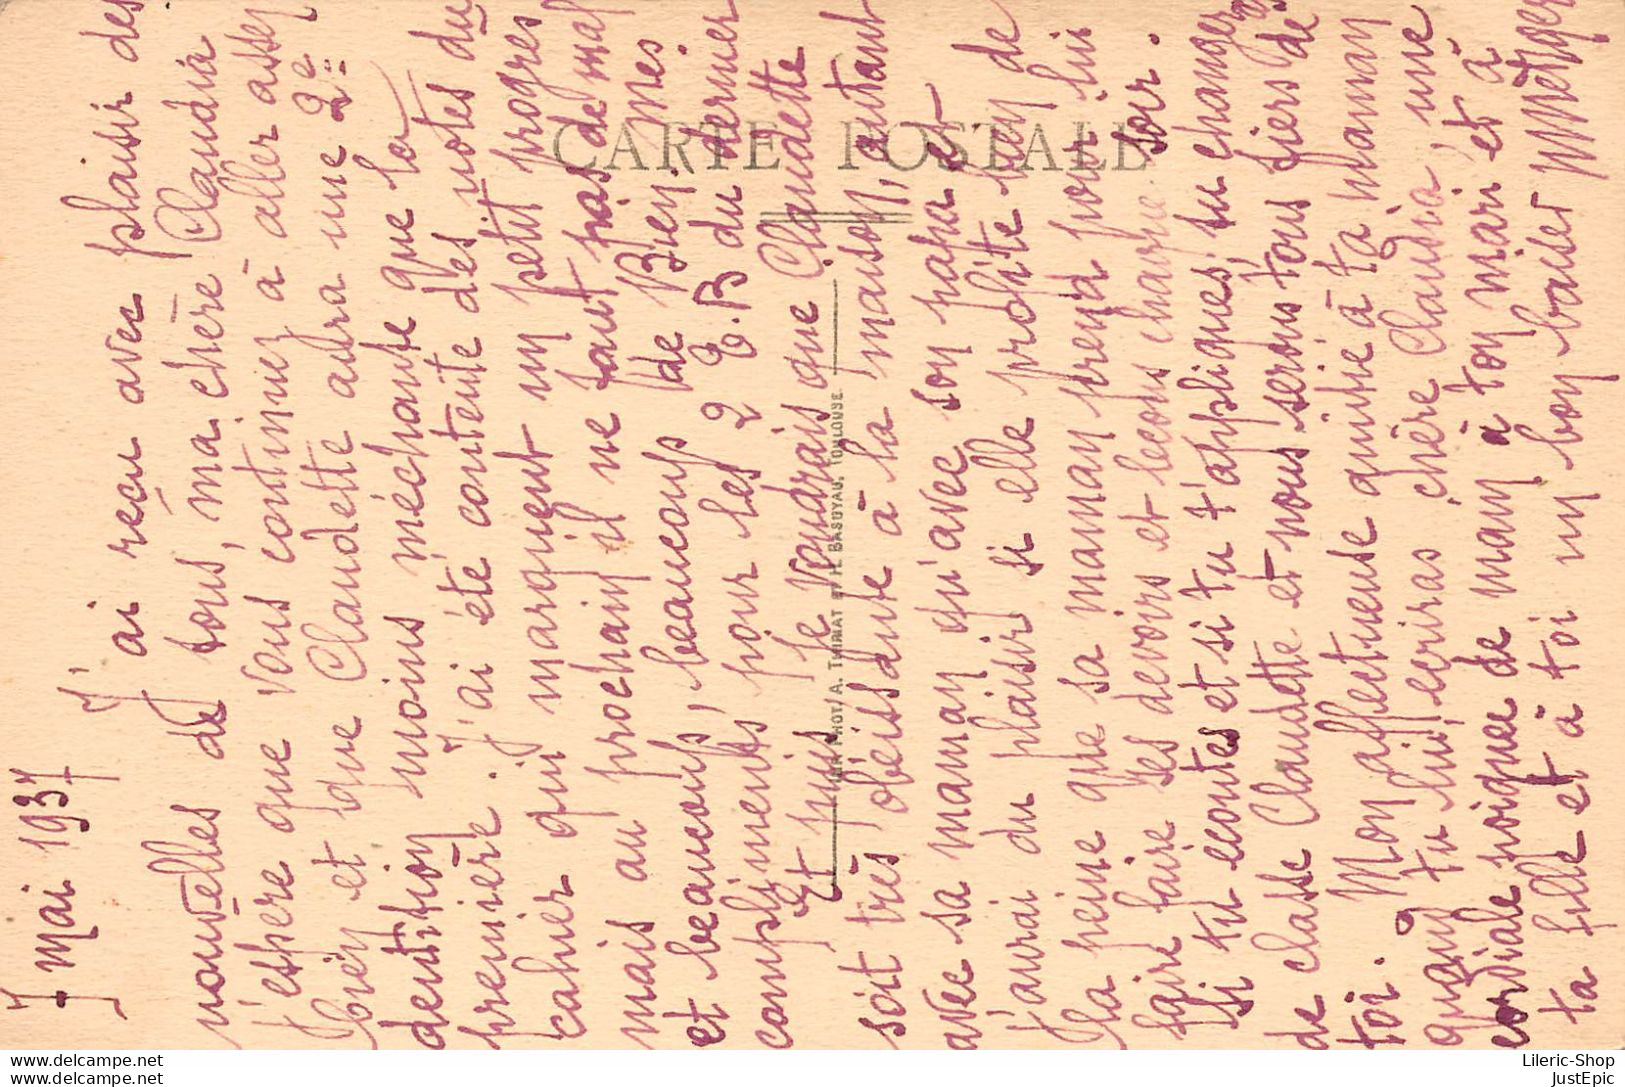 7 mai 1937
J'ai reçu avec plaisir des
nouvelles de vous, ma chère Claudia
j'espère que vous continuez à aller assez
bien et que Claudette aura une 2e
dentition moins méchante que la
première. J'ai été contente des notes du
cahier qui marquent un petit progrès
mais au prochain il ne faut pas de mal
et beaucoup, beaucoup de Bien. mes
compliments pour les 2 T.B du dernier
Et puis je voudrais que Claudette
soit très obéissante à la maison, autant
avec sa maman qu'avec son papa et
j'aurai du plaisir si elle profite bien de
la peine que sa maman prend pour lui
faire faire ses devoirs et leçons chaque soir.
Si tu écoutes et si tu t'appliques, tu changeras
de classe Claudette et nous serons tous fiers de
toi. Mon affectueuse amitié à ta maman
quand tu lui écriras chère Claudia, une
cordiale poignée de main à ton mari et à
ta fille et à toi un bon baiser MMetzger
CARTE POSTALE
PHOT/A. THIRIAT ET H. BASUYAU, TOULOUSE
Lileric-Shop
JustEpic
JustEpic